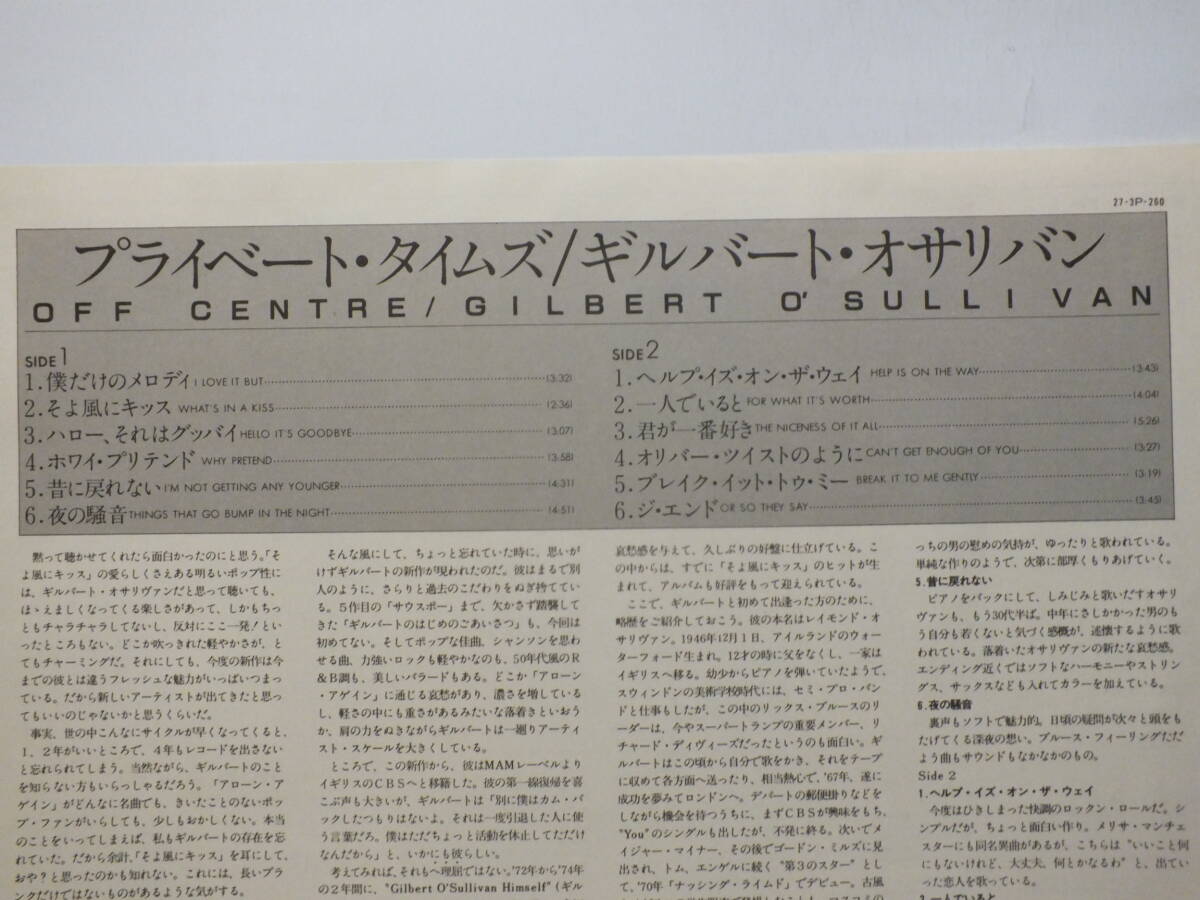 27・3P-260
プライベート・タイムズ/ギルバート・オサリバン
OFF CENTRE/GILBERT O'SULLIVAN
SIDE 1
1.僕だけのメロディ I LOVE IT BUT (3:32)
2.そよ風にキッス WHAT'S IN A KISS (2:36)
3.ハロー、それはグッバイ HELLO IT'S GOODBYE (3:07)
4.ホワイ・プリテンド WHY PRETEND (3:58)
5.昔に戻れない I'M NOT GETTING ANY YOUNGER (4:31)
6.夜の騒音 THINGS THAT GO BUMP IN THE NIGHT (4:51)
SIDE 2
1.ヘルプ・イズ・オン・ザ・ウェイ HELP IS ON THE WAY (3:43)
2.一人でいると FOR WHAT IT'S WORTH (4:04)
3.君が一番好き THE NICENESS OF IT ALL (5:26)
4.オリバー・ツイストのように CAN'T GET ENOUGH OF YOU (3:27)
5.ブレイク・イット・トゥ・ミー BREAK IT TO ME GENTLY (3:19)
6.ジ・エンド OR SO THEY SAY (3:45)
黙って聴かせてくれたら面白かったのにと思う。「そ
よ風にキッス」の愛らしくさえある明るいポップ性に
は、ギルバート・オサリヴァンだと思って聴いても、
ほゝえましくなってくる楽しさがあって、しかもちっ
ともチャラチャラしてないし、反対にここ一発!とい
ったところもない。どこか吹っきれた軽やかさが、と
てもチャーミングだ。それにしても、今度の新作は今
までの彼とは違うフレッシュな魅力がいっぱいつまっ
ている。だから新しいアーティストが出てきたと思っ
てもいいのじゃないかと思うくらいだ。
事実、世の中こんなにサイクルが早くなってくると、
1、2年がいいところで、4年もレコードを出さない
と忘れられてしまう。当然ながら、ギルバートのこと
を知らない方もいらっしゃるだろう。「アローン・ア
ゲイン」がどんなに名曲でも、きいたことのないポッ
プ・ファンがいらしても、少しもおかしくない。本当
のことをいってしまえば、私もギルバートの存在を忘
れていた。だから余計、「そよ風にキッス」を耳にして、
おや?と思ったのかも知れない。これには、長いブラ
ンクだけではないものがあるような気がする。
そんな風にして、ちょっと忘れていた時に、思いが
けずギルバートの新作が現われたのだ。彼はまるで別
人のように、さらりと過去のこだわりをぬぎ捨ててい
る。5作目の「サウスポー」まで、欠かさず踏襲して
きた「ギルバートのはじめのごあいさつ」も、今回は
初めてない。そしてポップな佳曲、シャンソンを思わ
せる曲、力強いロックも軽やかなのも、50年代風のR
&B調も、美しいバラードもある。どこか「アローン
・アゲイン」に通じる哀愁があり、濃さを増している
し、軽さの中にも重さがあるみたいな落着きといおう
か、肩の力をぬきながらギルバートは一廻りアーティ
スト・スケールを大きくしている。
ところで、この新作から、彼はMAMレーベルより
イギリスのCBSへと移籍した。彼の第一線復帰を喜
こぶ声も大きいが、ギルバートは「別に僕はカム・バ
ックしたつもりはないよ。それは一度引退した人に使
う言葉だろ。僕はただちょっと活動を休止してただけ
なんだから」と、いかにも彼らしい。
考えてみれば、それもヘ理屈ではない。'72年から'74年
の2年間に、“Gilbert O'Sullivan Himself”(ギル
哀愁感を与えて、久しぶりの好盤に仕立げている。こ
の中からは、すでに「そよ風にキッス」のヒットが生
まれて、アルバムも好評をもって迎えられている。
ここで、ギルバートと初めて出逢った方のために、
略歴をご紹介しておこう。彼の本名はレイモンド・オ
サリヴァン。1946年12月1日、アイルランドのウォー
ターフォード生まれ。12才の時に父をなくし、一家は
イギリスへ移る。幼少からピアノを弾いていたようで、
スウィンドンの美術学校時代には、セミ・プロ・バン
ドと仕事もしたが、この中のリックス・ブルースのリ
ーダーは、今やスーパートランプの重要メンバー、リ
チャード・ディヴィーズだったというのも面白い。ギ
ルバートはこの頃から自分で歌をかき、それをテープ
に収めて各方面へ送ったり、相当熱心で、'67年、遂に
成功を夢みてロンドンへ。デパートの郵便掛りなどを
しながら機会を待つうちに、まずCBSが興味をもち、
“You”のシングルも出したが、不発に終る。次いでメ
イジャー・マイナー、その後でゴードン・ミルズに見
出され、トム、エンゲルに続く“第3のスター”とし
て、'70年「ナッシング・ライムド」でデビュー。古風
っちの男の慰めの気持が、ゆったりと歌われている。
単純な作りのようで、次第に部厚くもりあげていく。
5.昔に戻れない
ピアノをバックにして、しみじみと歌いだすオサリ
ヴァンも、もう30代半ば。中年にさしかかった男のも
う自分も若くないと気づく感概が、述懐するように歌
われている。落着いたオサリヴァンの新たな哀愁感。
エンディング近くではソフトなハーモニーやストリン
グス、サックスなども入れてカラーを加えている。
6.夜の騒音
裏声もソフトで魅力的。日頃の疑問が次々と頭をも
たげてくる深夜の想い。ブルース・フィーリングただ
よう曲もサウンドもなかなかのもの。
Side 2
1.ヘルプ・イズ・オン・ザ・ウェイ
今度はひきしまった快調のロックン・ロールだ。シ
ンプルだが、ちょっと面白い作り。メリサ・マンチェ
スターにも同名異曲があるが、こちらは“いいこと何
にもないけれど、大丈夫、何とかなるわ”と、出てい
った恋人を歌っている。
2.一人でいると